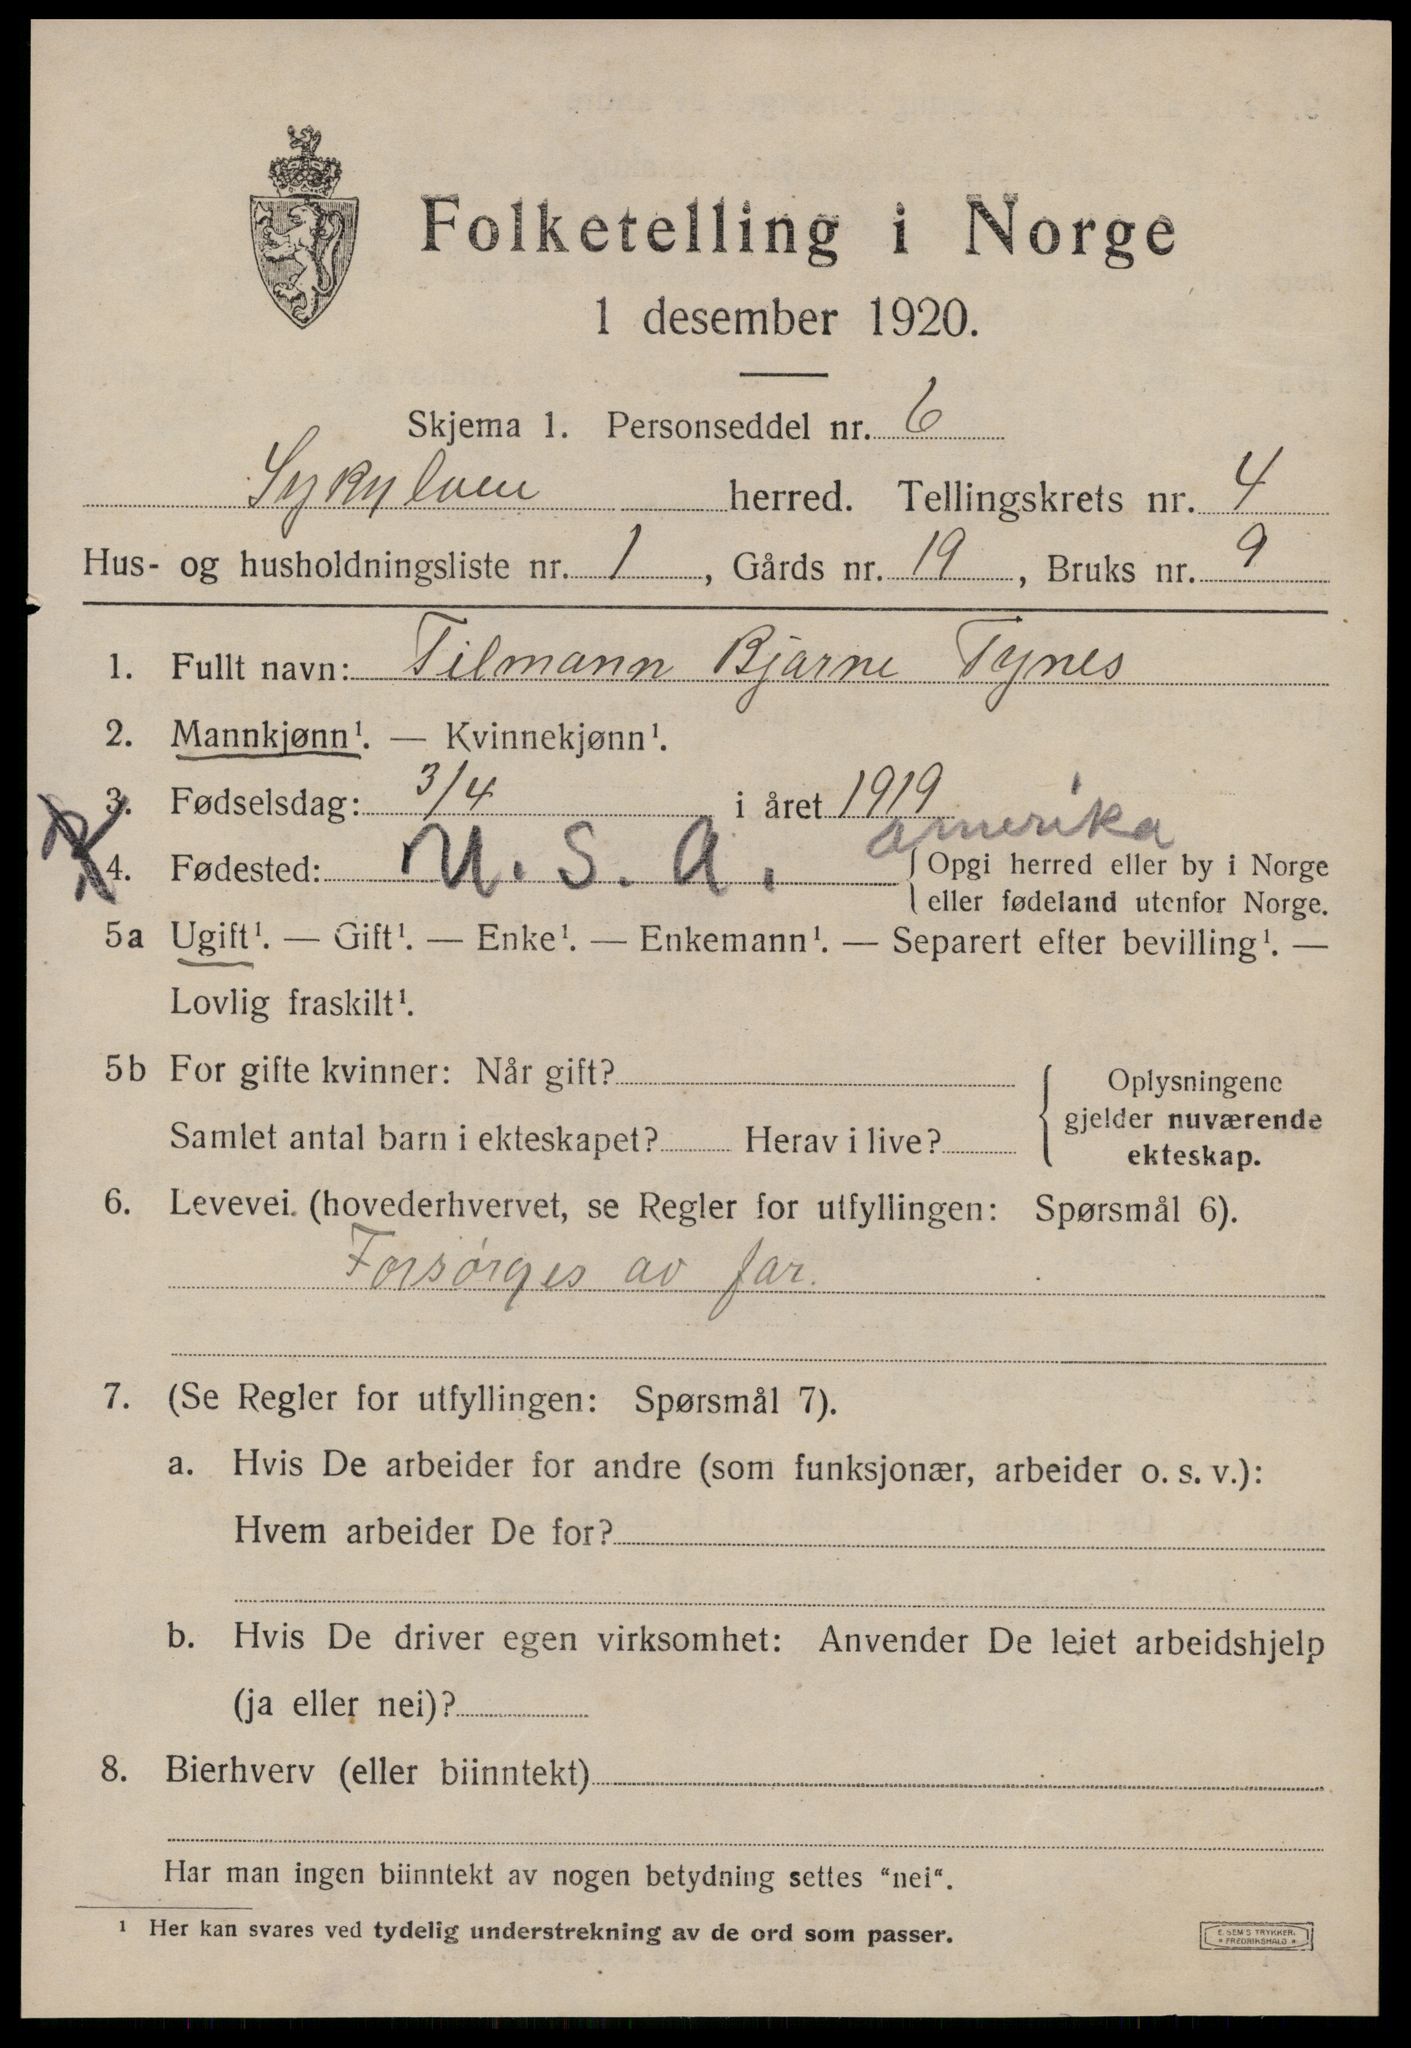 Folketelling i Norge
1 desember 1920.
Skjema 1. Personseddel nr. 6
Sykylven herred. Tellingskrets nr. 4
Hus- og husholdningsliste nr. 1, Gårds nr. 19, Bruks nr. 9
1. Fullt navn: Tilmann Bjarne Tynes
2. Mannkjønn¹. — Kvinnekjønn¹.
3. Fødselsdag: 3/4 i året 1919
amerika
4. Fødested: U.S.A. Opgi herred eller by i Norge
eller fødeland utenfor Norge.
5a Ugift¹. — Gift¹. — Enke¹. — Enkemann¹. — Separert efter bevilling¹. —
Lovlig fraskilt¹.
5b For gifte kvinner: Når gift?
Samlet antal barn i ekteskapet? Herav i live?
Oplysningene
gjelder nuværende
ekteskap.
6. Levevei. (hovederhvervet, se Regler for utfyllingen: Spørsmål 6).
Forsørges av far.
7. (Se Regler for utfyllingen: Spørsmål 7).
a. Hvis De arbeider for andre (som funksjonær, arbeider o. s. v.):
Hvem arbeider De for?
b. Hvis De driver egen virksomhet: Anvender De leiet arbeidshjelp
(ja eller nei)?
8. Bierhverv (eller biinntekt)
Har man ingen biinntekt av nogen betydning settes “nei“.
¹ Her kan svares ved tydelig understrekning av de ord som passer.
E. SEM'S TRYKKERI
* FREDRIKSHALD *